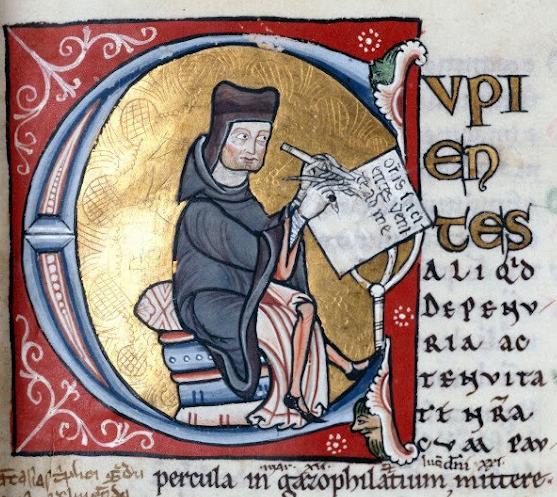 CVPI
EN
TES
ALIQ̄D
DEPENV
RIA AC
TENVITA
TE NR̄A
CVM PAV
percula in gazophilatium mittere
entes veni
te ad me
mar. xii.